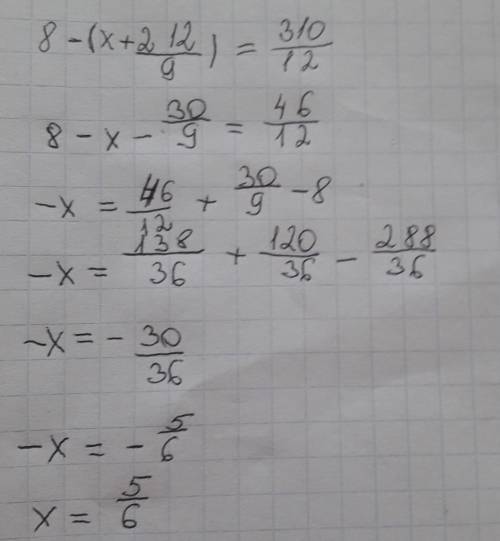 8 - (x + 2 12/9) = 310/12
8 - x - 30/9 = 46/12
-x = 46/12 + 30/9 - 8
-x = 138/36 + 120/36 - 288/36
-x = - 30/36
-x = - 5/6
x = 5/6